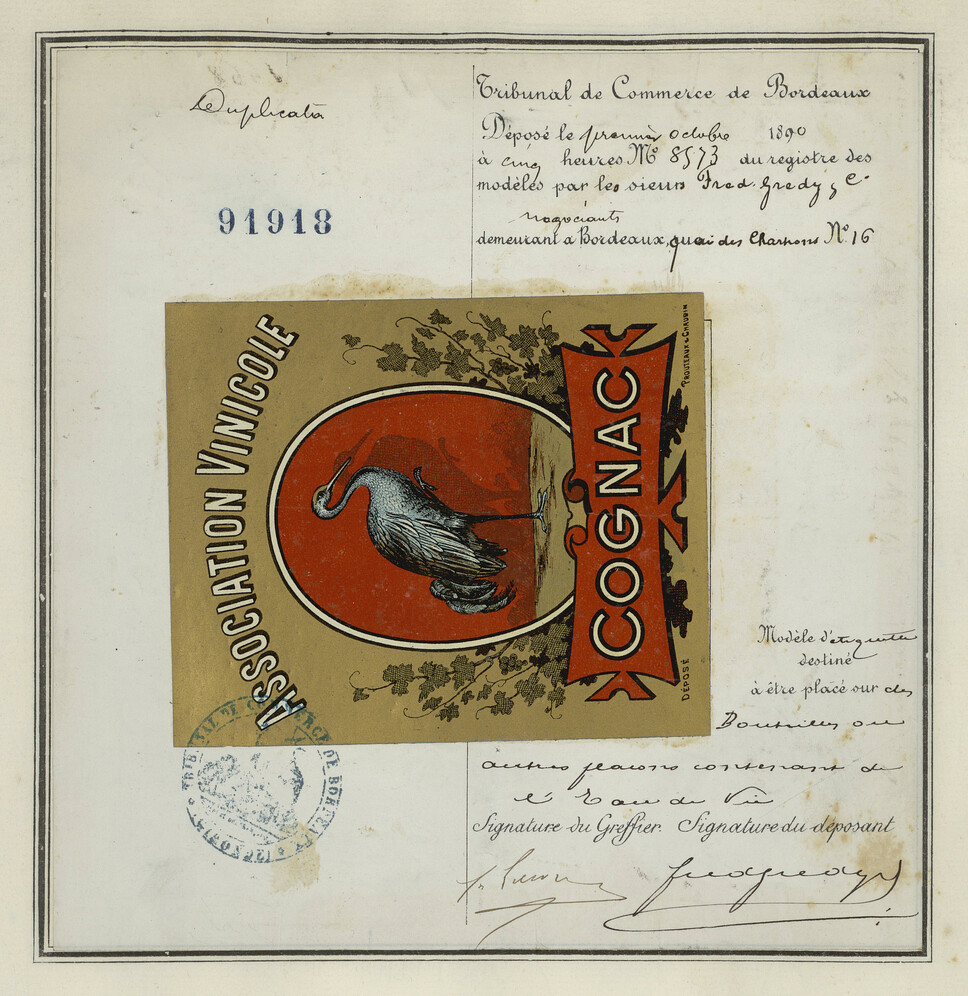 Duplicata
91918
Tribunal de Commerce de Bordeaux
Déposé le premier octobre 1890
à cinq heures Nº 8573 du registre des
modèles par les sieurs Fred. Gredy & Cº
négociants
demeurant à Bordeaux, quai des Chartrons Nº 16
ASSOCIATION VINICOLE
COGNAC
PROUTEAUX & CHAUVIN
DÉPOSÉ
Modèle d'etiquette
destiné
à être placé sur des
Bouteilles ou
autres flacons contenant de
l'Eau de Vie
Signature du Greffier. Signature du déposant
fredgredy
TRIBUNAL DE COMMERCE DE BORDEAUX (GIRONDE)